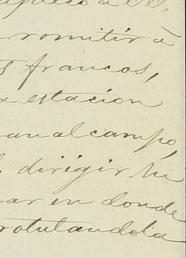 romitir á
francos,
estación
an al campo,
dirigir mi
ar en donde
rotulandola